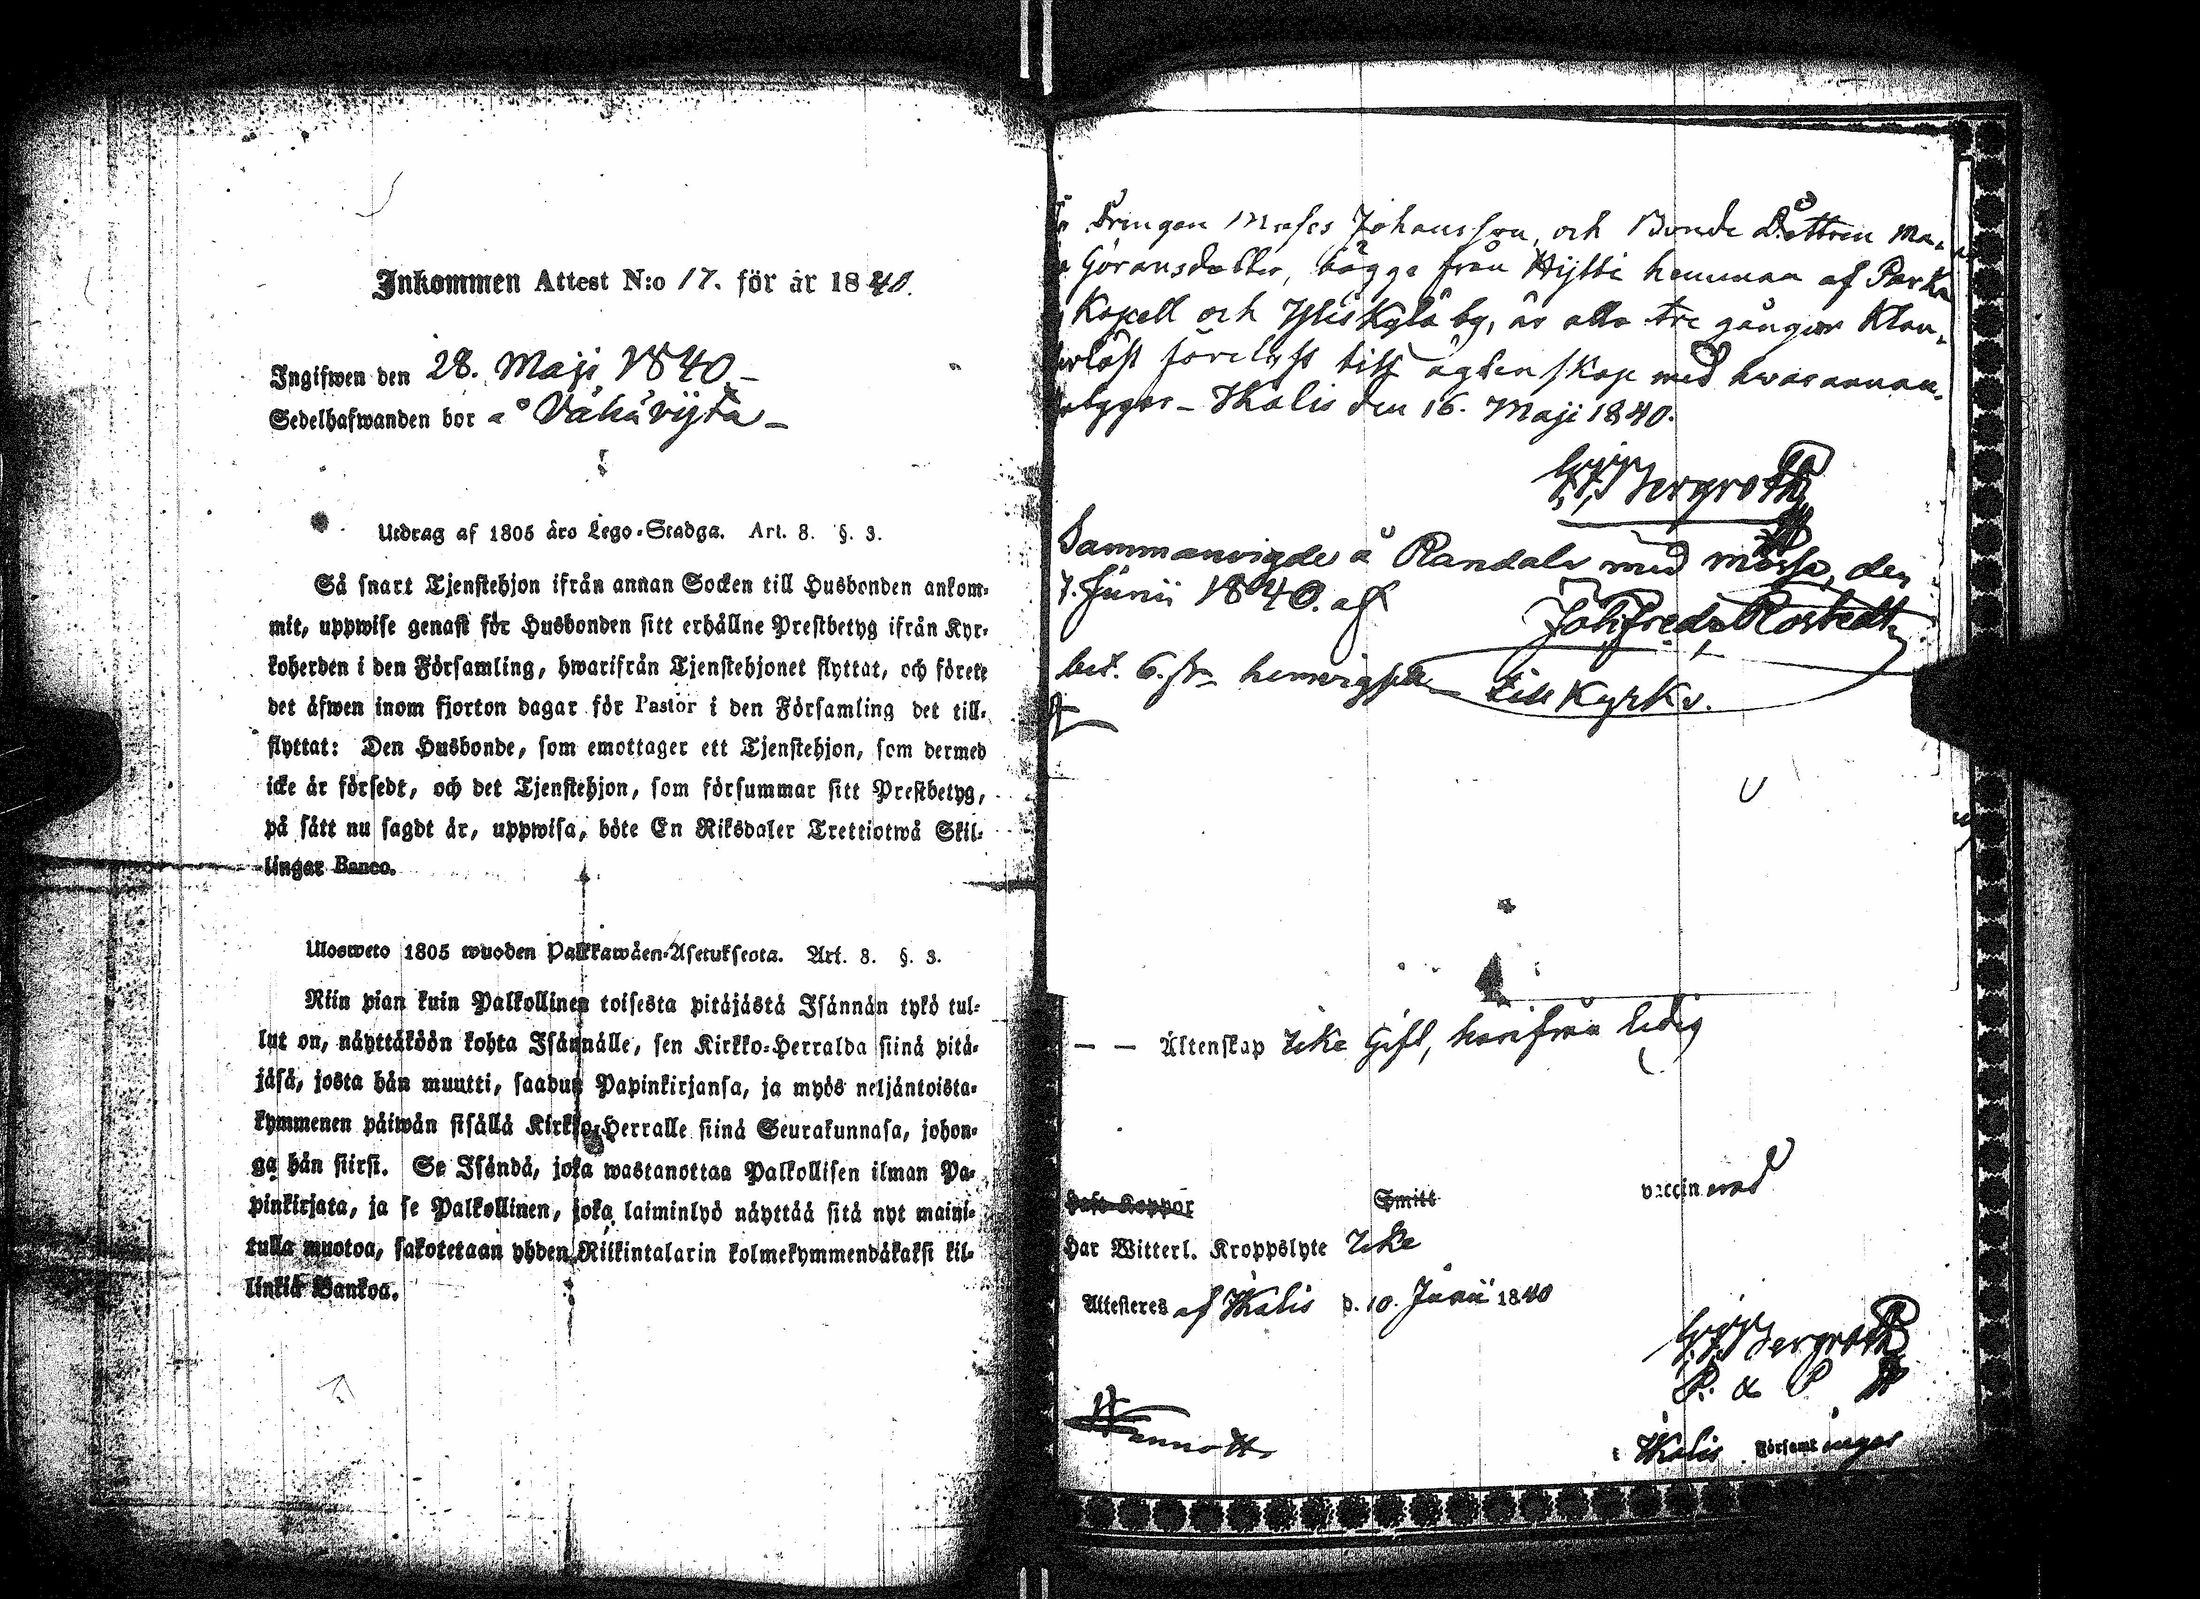 Inkommen Attest N:o 17. för år 1840.
Ingifwen den 28. Maji 1840. –
Sedelhafwanden bor å Vähäröyhä –
Utdrag af 1805 års Lego-Stadga. Art. 8. §. 3.
Så snart Tjenstehjon ifrån annan Socken till Husbonden ankom-
mit, uppwise genast för Husbonden sitt erhållne Prestbetyg ifrån Kyr-
koherden i den Församling, hwarifrån Tjenstehjonet flyttat, och förete
det äfwen inom fjorton dagar för Pastor i den Församling det till-
flyttat: Den Husbonde, som emottager ett Tjenstehjon, som dermed
icke är försedt, och det Tjenstehjon, som försummar sitt Prestbetyg,
på sätt nu sagdt är, uppwisa, böte En Riksdaler Trettiotwå Skil-
lingar Banco.
Ulosweto 1805 wuoden Palkkawäen-Asetuksesta. Art. 8. §. 3.
Niin pian kuin Palkollinen toisesta pitäjästä Isännän tykö tul-
lut on, näyttäköön kohta Isännälle, sen Kirkko-Herralda siinä pitä-
jäsä, josta hän muutti, saadun Papinkirjansa, ja myös neljäntoista-
kymmenen päiwän sisällä Kirkko-Herralle siinä Seurakunnasa, johon-
ga hän siirsi. Se Isändä, joka wastanottaa Palkollisen ilman Pa-
pinkirjata, ja se Palkollinen, joka laiminlyö näyttää sitä nyt maini-
tulla muotoa, sakotetaan yhden Riikintalarin kolmekymmendäkaksi kil-
linkiä Bankoa.
Drängen Moses Johansson, och Bonde Dottren Ma-
Göransdotter, bägge från Hytti hemman af Parka
Kapell och Yliskylä by, är alla tre gånger Klan-
derlöst föreläst till ägtenskap med hwarannan,
betygar – Ikalis den 16. Maji 1840.
Bergroth
Sammanvigde å Randala med mässa, den
7. Junii 1840. af
Joh. Fred. Rostedt
bet. 6. hemvigsel till Kyrkv.
– – Äktenskap Icke Gift, härifrån ledig
Haft Koppor Smitt vaccinerad
Har Witterl. Kroppslyte Icke
Attesteres af Ikalis d. 10. Junii 1840
Bergroth
P. & P
i Ikalis Församlingar